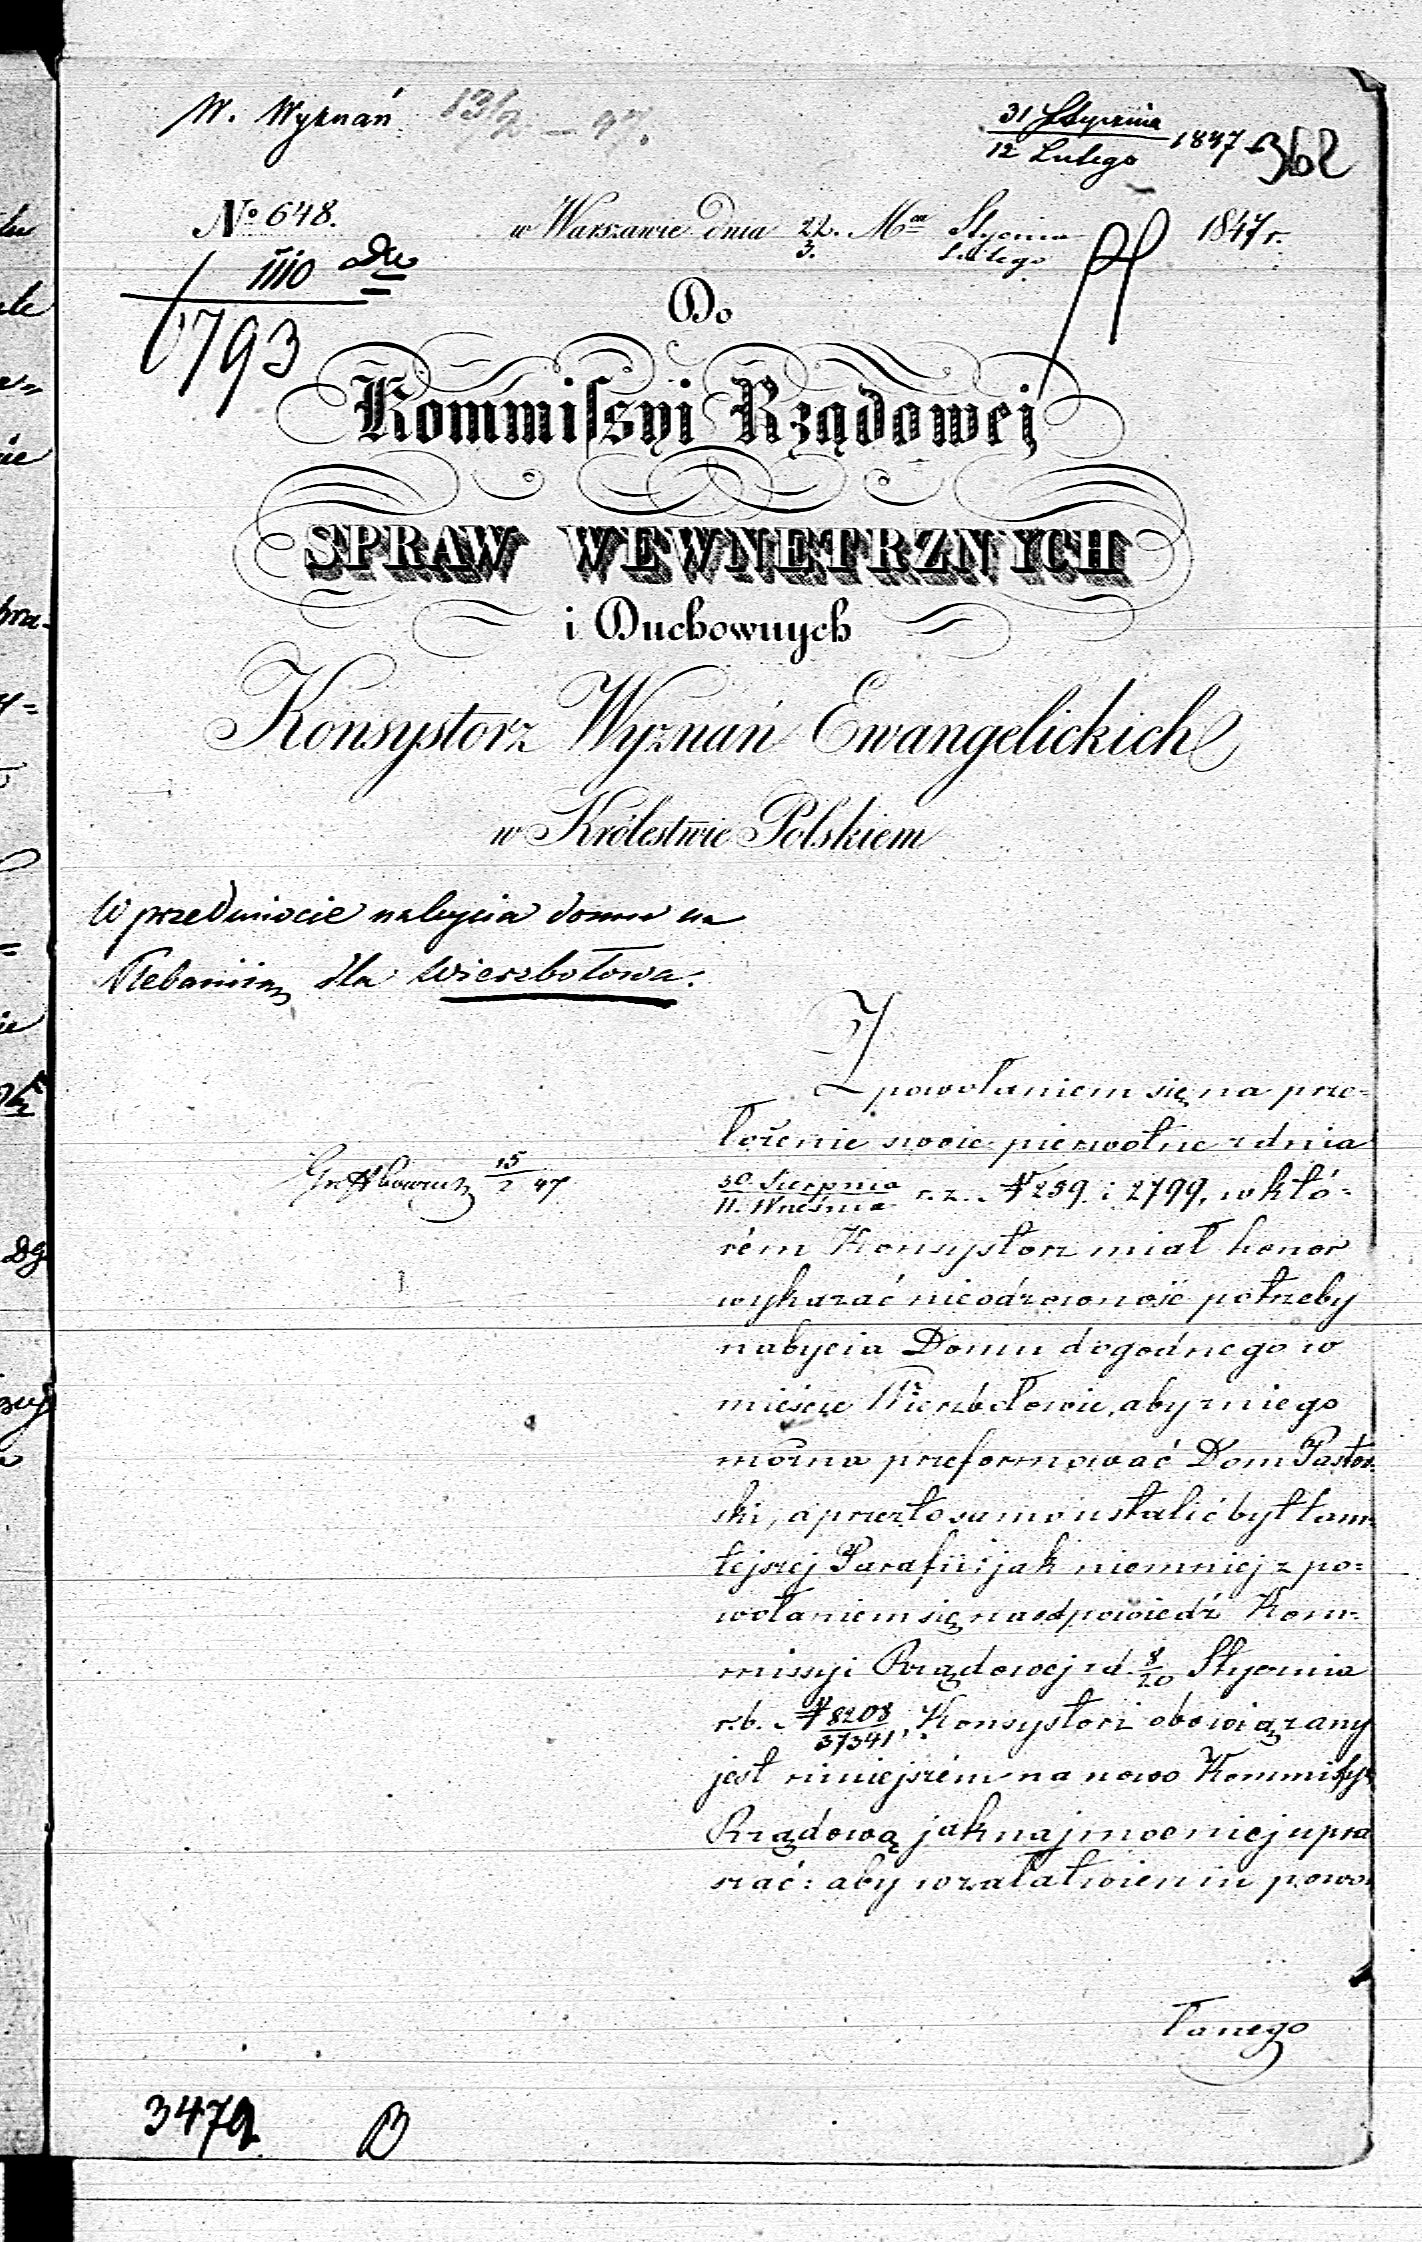 W. Wyznań 13/2 – 47.
31 Stycznia
12 Lutego 1847
362
No 648.
w Warszawie dnia 22/3. Mca Stycznia/Lutego 1847 r.
1110
793
Do
Kommissyi Rządowej
SPRAW WEWNETRZNYCH
i Duchownych
Konsystorz Wyznań Ewangelickich
w Królestwie Polskiem
W przedmiocie nabycia domu na
Plebaniią dla Wierzbołowa.
Z powołaniem się na prze-
łożenie swoie pierwotne z dnia
15/2 47
30 Sierpnia/11. Września r. z. N 259 i 2799, w któ-
rém Konsystorz miał honor
wykazać nieodzowność potrzeby
nabycia Domu dogodnego w
mieście Wierzbołowie, aby z niego
można przeformować Dom Pastor-
ski, a przezto samo ustalić był tam-
tejszej Parafii; jak niemniej z po-
wołaniem się na odpowiedź Kom-
missyi Rządowej z d. 8/20 Stycznia
r.b. N 8208/37341, Konsystorz obowiązany
jest niniejszém na nowo Kommissyi
Rządową jak najmocniej upra
szać: aby w załatwieniu powo-
łanego
3479 B